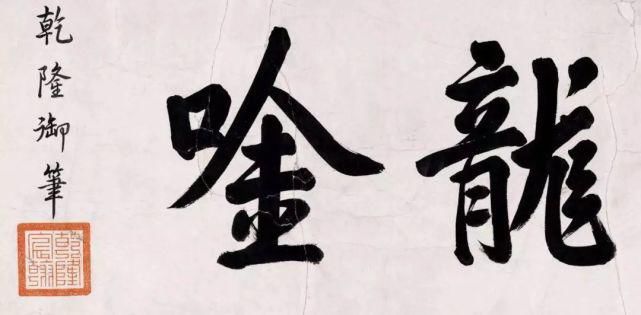 龍唫
乾隆御筆
乾隆
宸翰